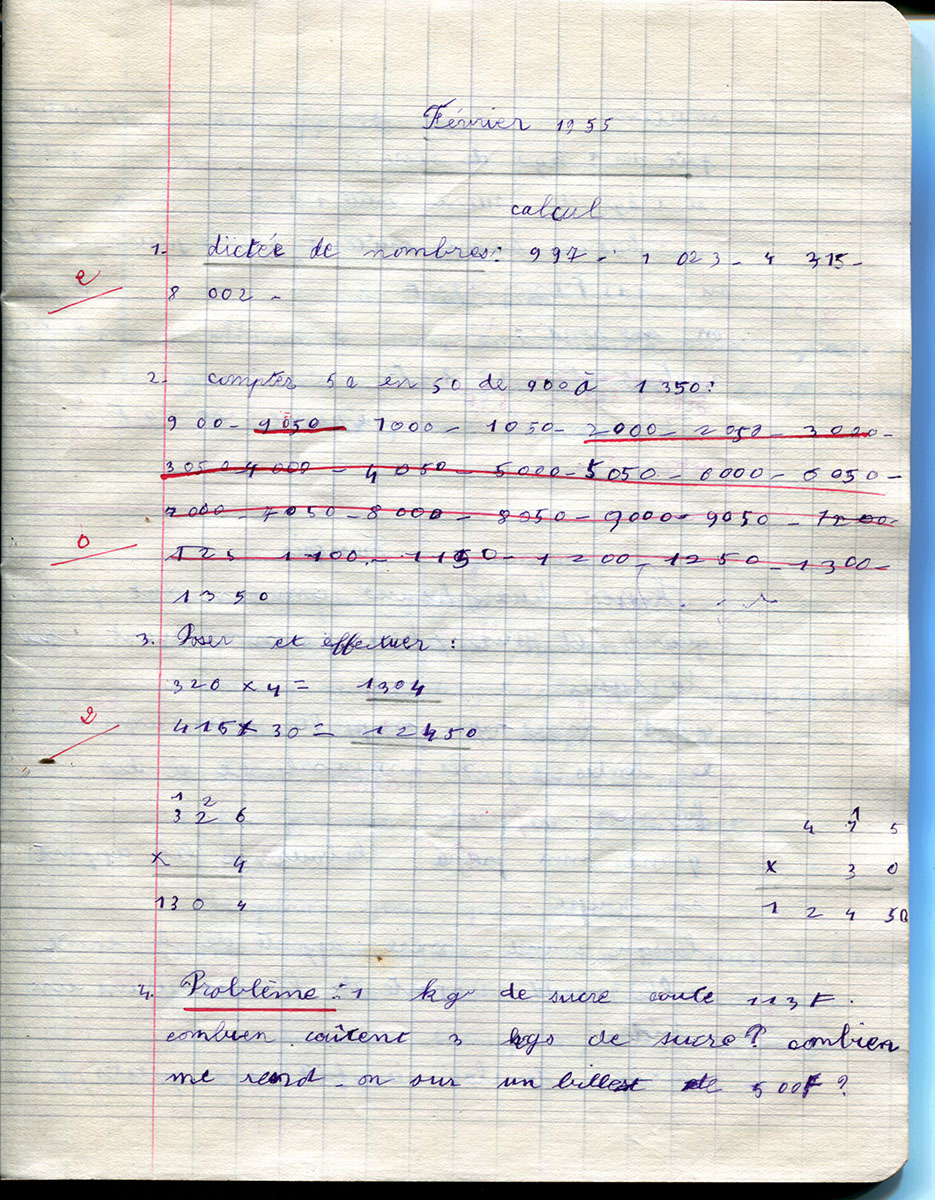 Février 1955
calcul
1. dictée de nombres: 997 - 1 023 - 4 315 -
2
8 002 -
2. compter 50 en 50 de 900 à 1 350:
900 - 9050 1000 - 1050 - 2000 - 2050 - 3000 -
3050 4000 - 4050 - 5000 - 5050 - 6000 - 6050 -
7000 - 7050 - 8000 - 8050 - 9000 - 9050 -
0
125 1100 - 1150 - 1200 - 1250 - 1300 -
1350
3. Poser et effectuer :
320 x 4 = 1304
2
415 x 30 = 12450
1 2 1
3 2 6 4 1 5
x 4 x 3 0
13 0 4 1 2 4 50
4. Problème : 1 kg de sucre coute 113 F.
combien coûtent 3 kgs de sucre? combien
me rend-on sur un billet de 500F ?